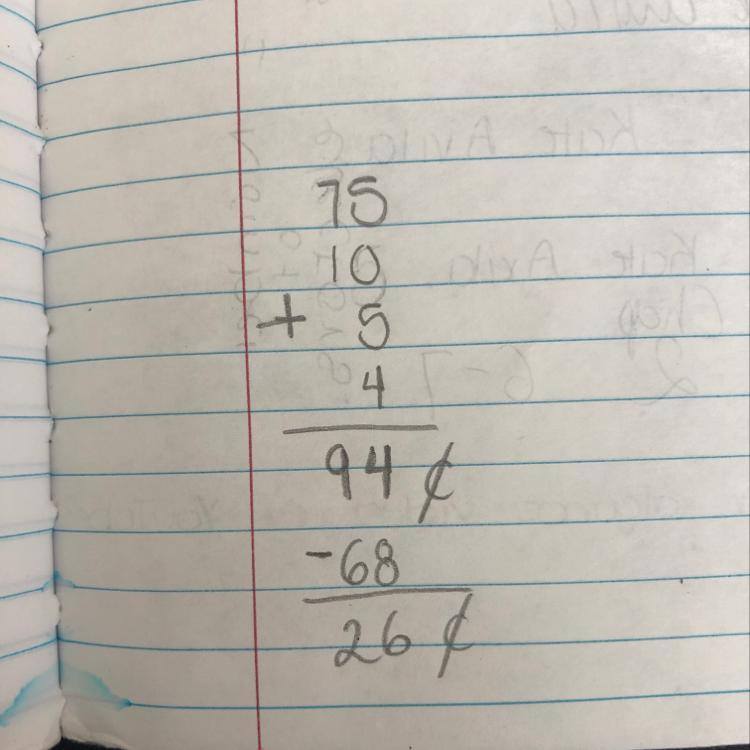 75
10
+ 5
4
94¢
-68
26¢